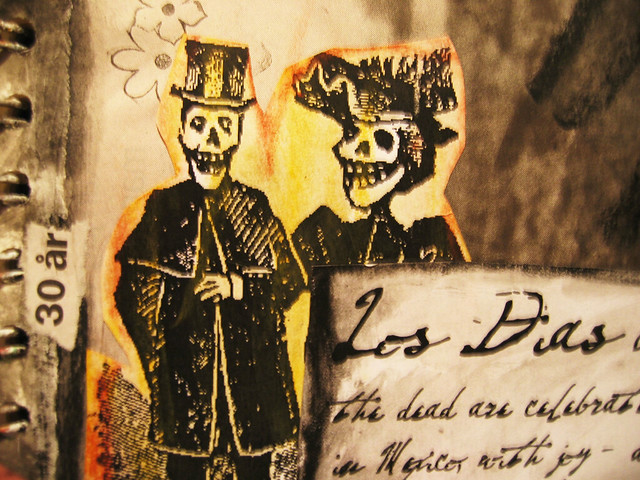 30 år
Los Dias
the dead are celebrat
in Mexico, with joy -